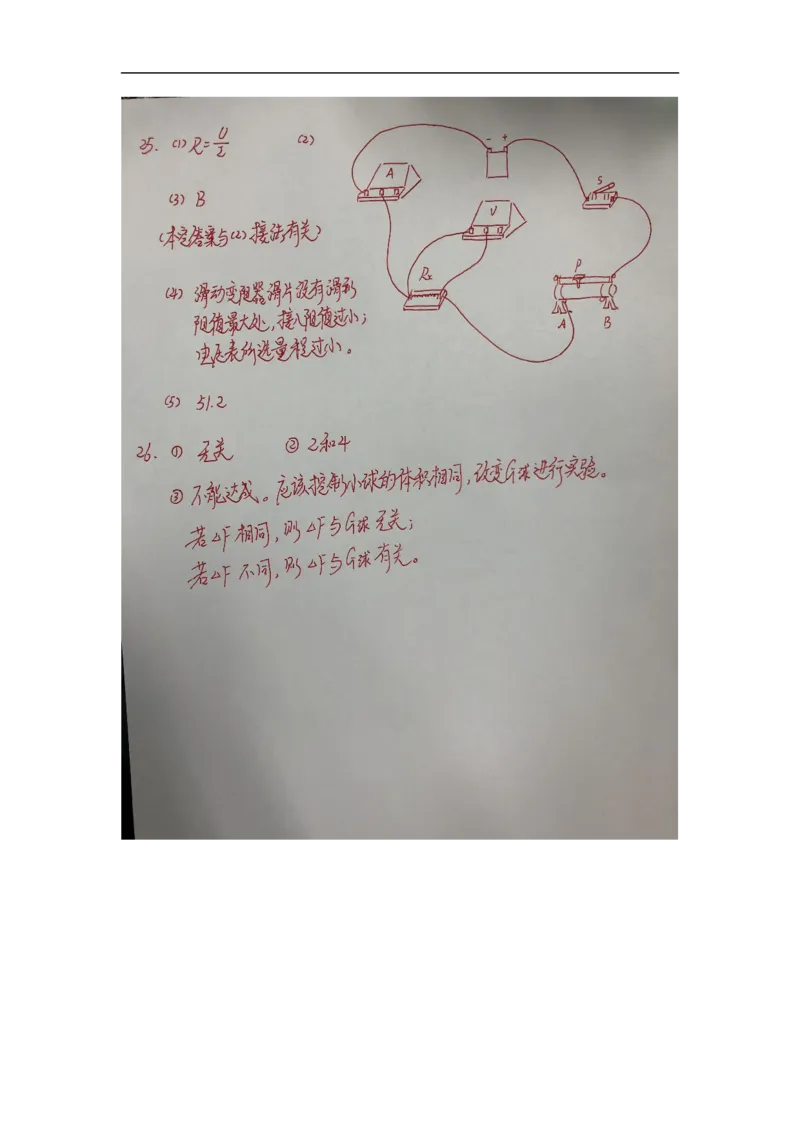 25. (1) R=U/2 (2)
- +
A
S
V
(3) B
(本空答案与(2)接法有关)
Rx
P
(4) 滑动变阻器滑片没有滑到
阻值最大处,接入阻值过小;
A B
电压表所选量程过小。
(5) 51.2
26. ① 无关 ② 2和4
③ 不能达成。应该控制小球的体积相同,改变G球进行实验。
若△F相同,则△F与G球无关;
若△F不同,则△F与G球有关。